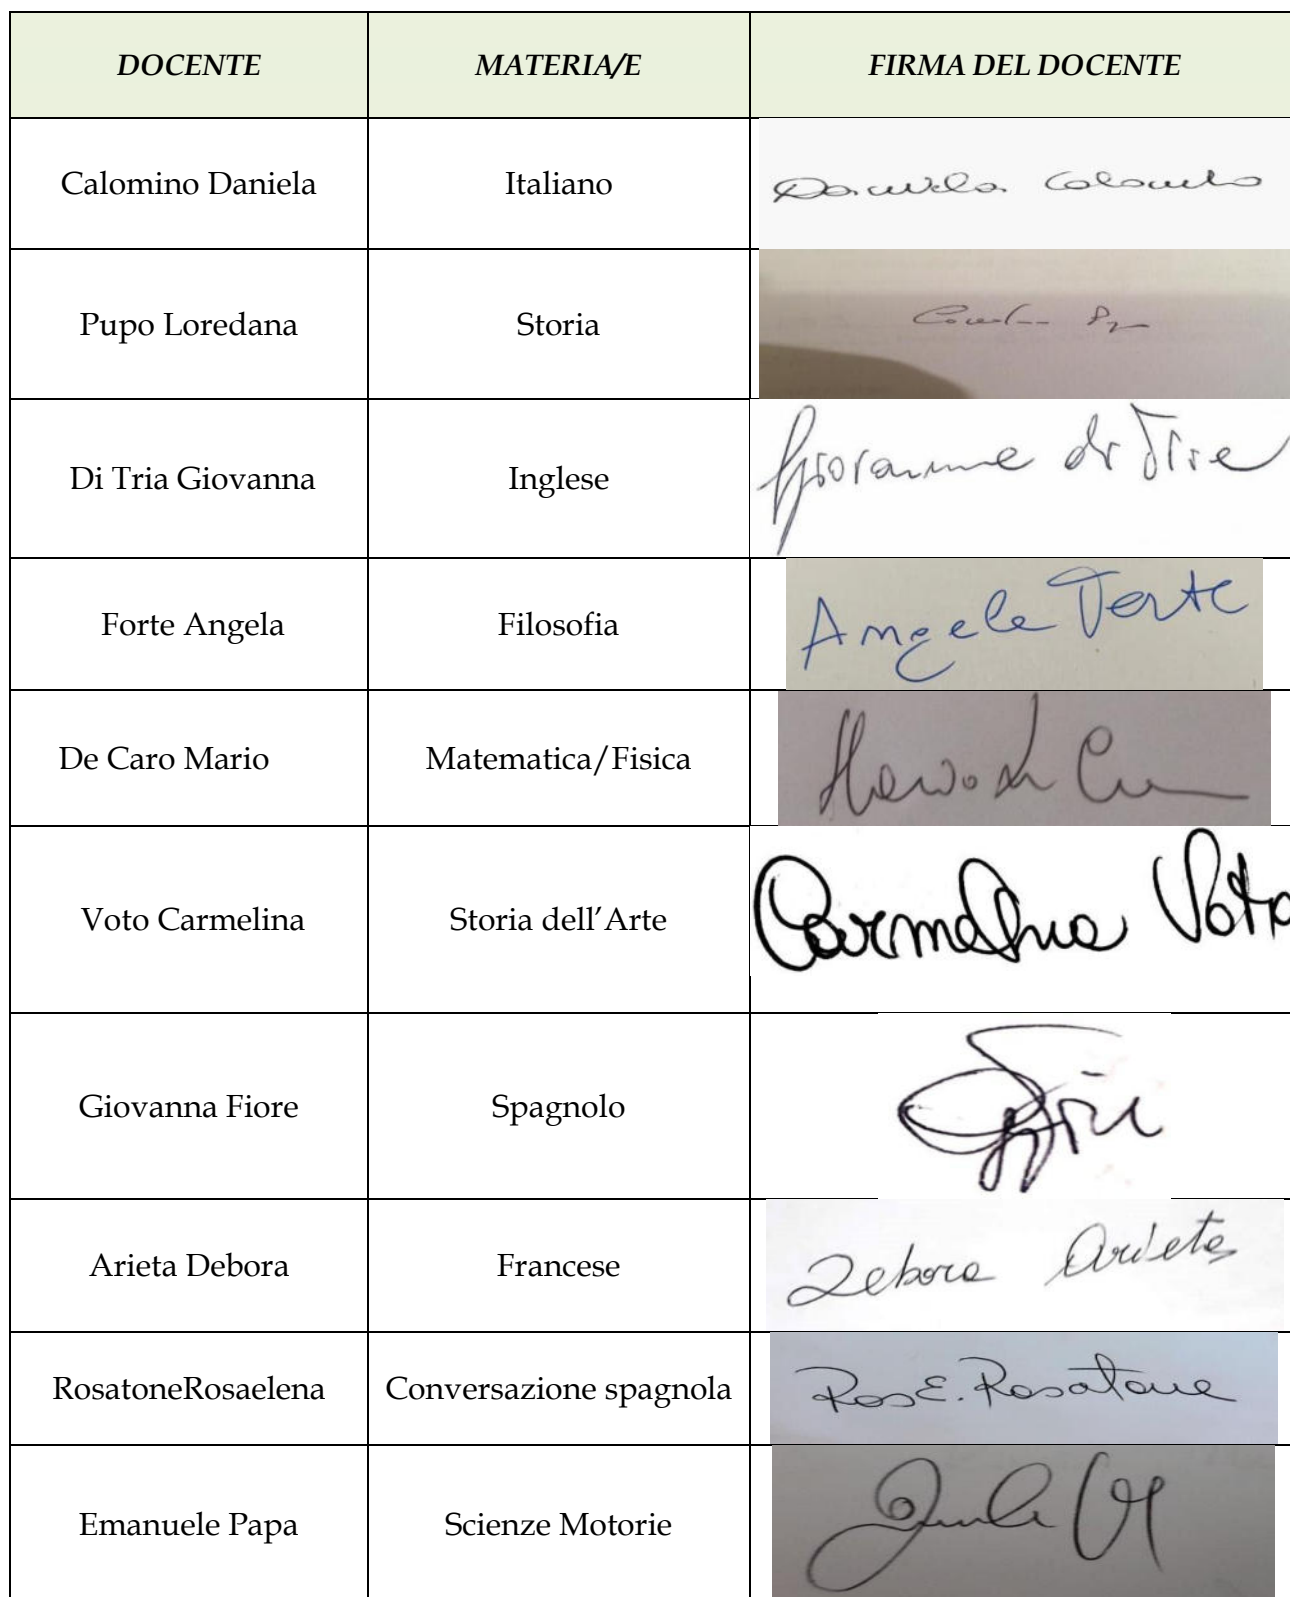 DOCENTE MATERIA/E FIRMA DEL DOCENTE
Calomino Daniela Italiano Daniela Calomino
Pupo Loredana Storia
Di Tria Giovanna Inglese Giovanna di Tria
Forte Angela Filosofia Angela Forte
De Caro Mario Matematica/Fisica Mario De
Voto Carmelina Storia dell'Arte Carmelina Voto
Giovanna Fiore Spagnolo
Arieta Debora Francese Debora Arieta
RosatoneRosaelena Conversazione spagnola Ros E. Rosatone
Emanuele Papa Scienze Motorie